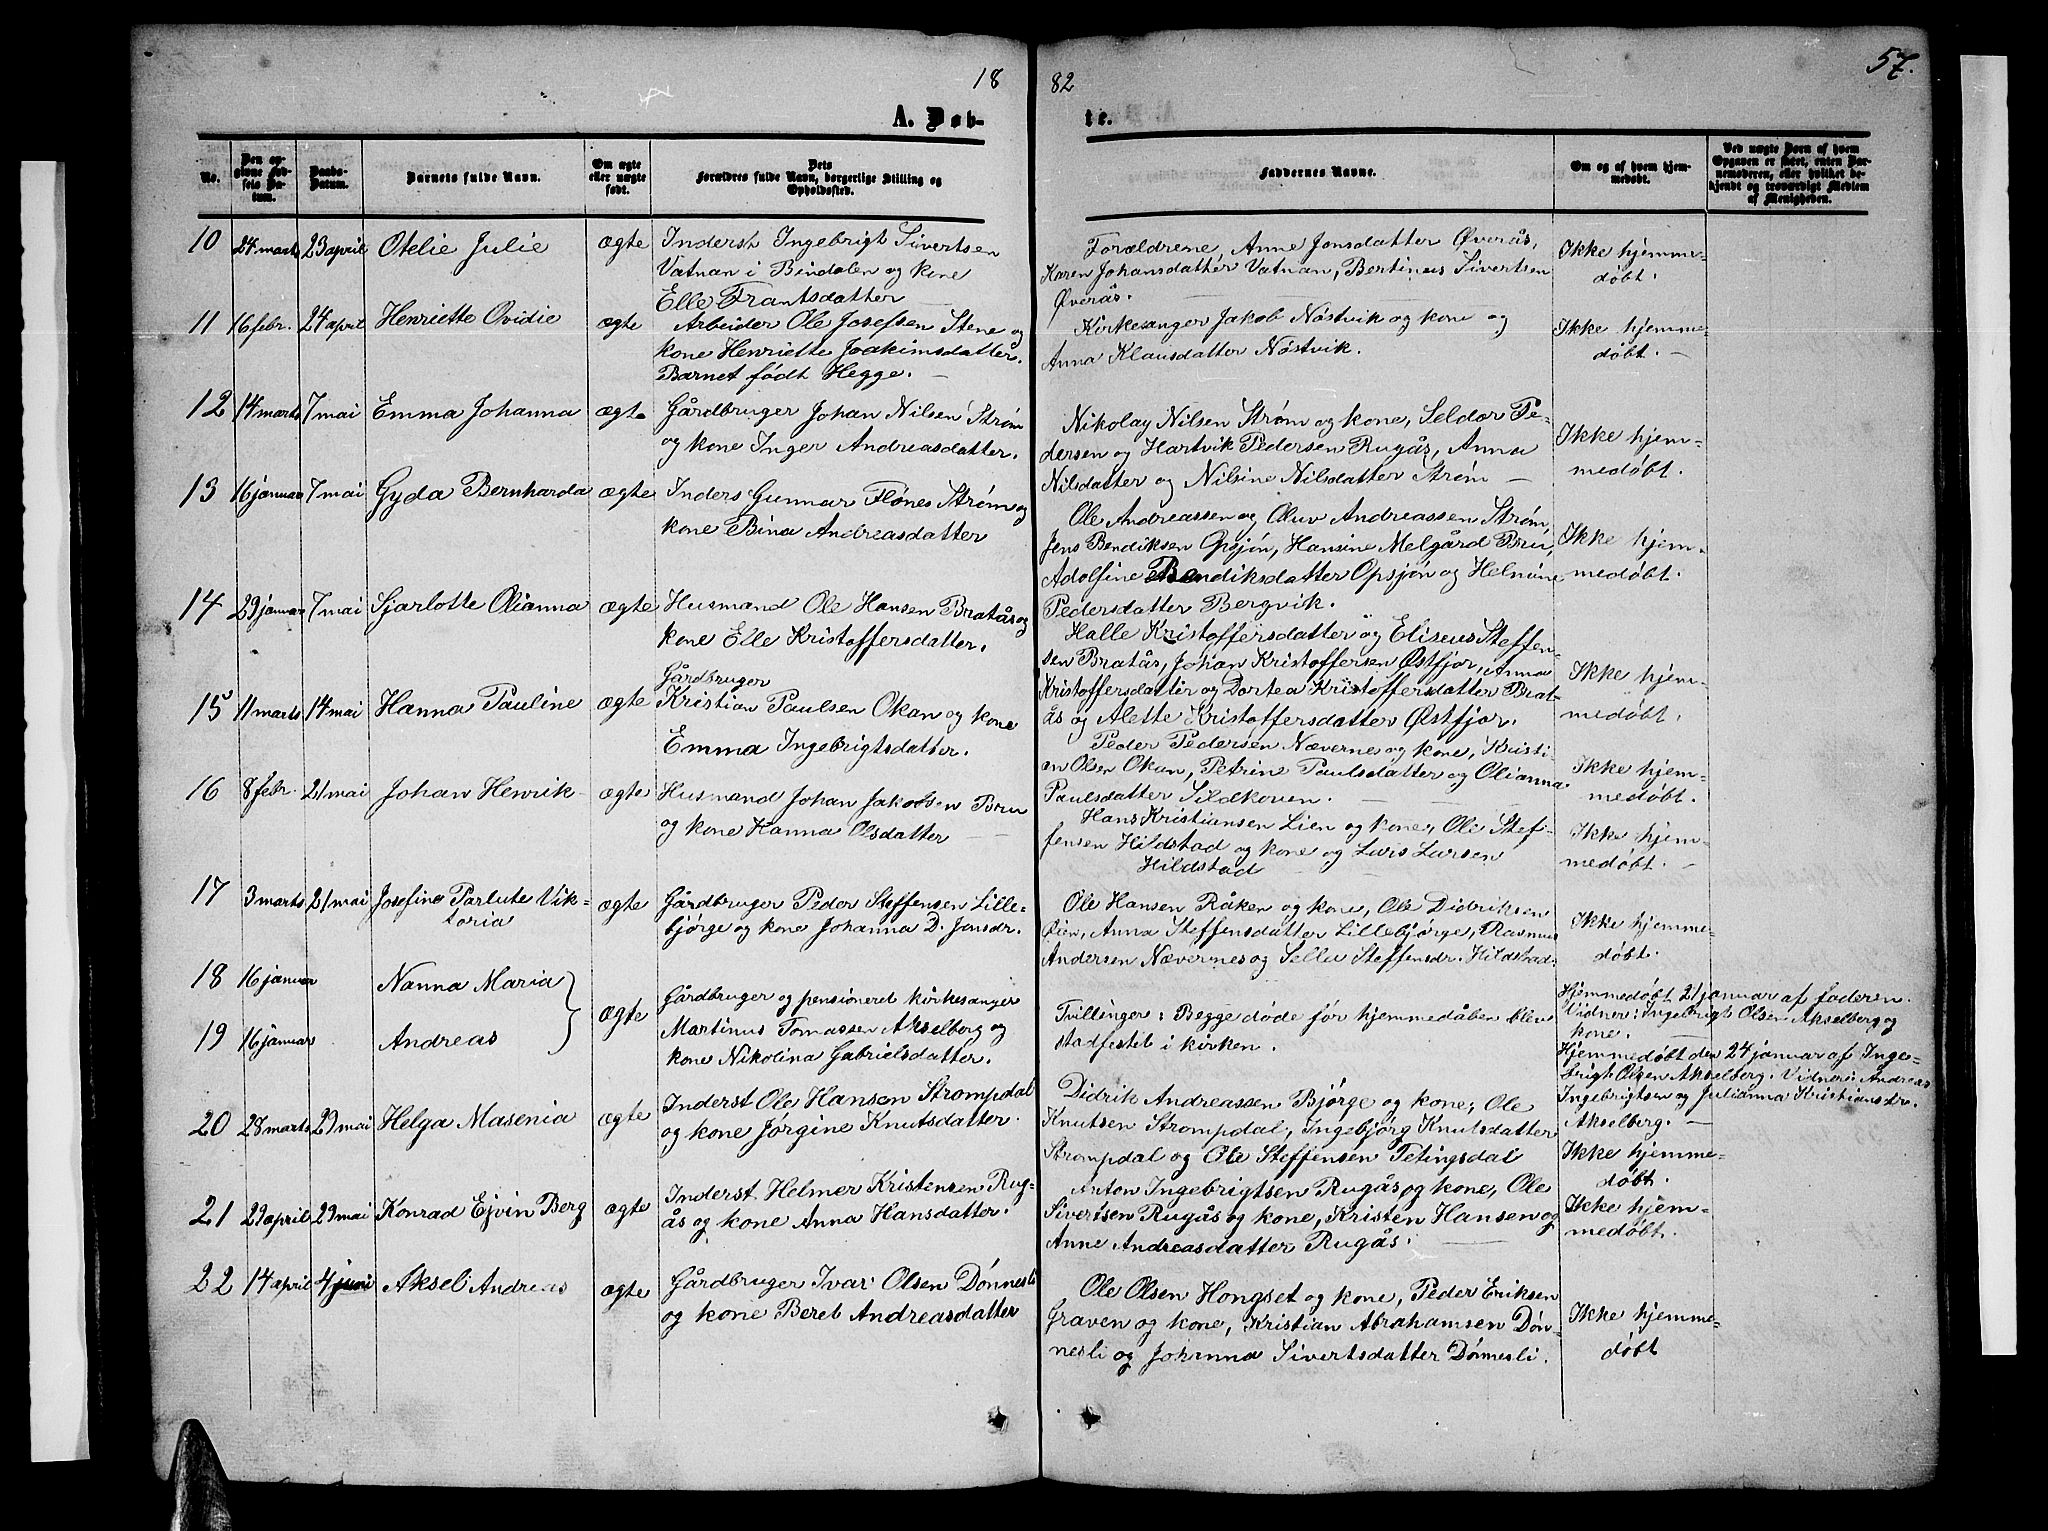 18 82 57.
A. Døb- te.
No.
Den opgivne Fødsels Datum.
Daabs-Datum.
Barnets fulde Navn.
Om ægte eller uægte født.
Dets Forældres fulde Navn, borgerlige Stilling og Opholdssted.
Faddernes Navne.
Om og af hvem hjemmedøbt.
Ved uægte Børn af hvem Opgaven er skeet, enten Barnemoderen, eller hvilket bekjendt og troværdigt Medlem af Menigheden.
10 24 marts 23 april Otelie Julie ægte
Inderst Ingebrigt Sivertsen
Vatnan i Bindalen og kone
Elle Frantsdatter
Forældrene, Anne Jonsdatter Øverås,
Karen Johansdatter Vatnan, Bertinus Sivertsen
Øverås.
Ikke hjemme-
døbt.
11 16 febr. 24 april Henriette Ovidie ægte
Arbeider Ole Josefsen Stene og
kone Henriette Joakimsdatter.
Barnet født Hegge.
Kirkesanger Jakob Nøstvik og kone og
Anna Klausdatter Nøstvik.
Ikke hjemme-
døbt.
12 14 marts 7 mai Emma Johanna ægte
Gårdbruger Johan Nilsen Strøm
og kone Inger Andreasdatter.
Nikolay Nilsen Strøm og kone, Seldor Pe-
dersen og Hartvik Pedersen Rugås, Anna
Nilsdatter og Nilsine Nilsdatter Strøm
Ikke hjem-
medøbt.
13 16 januar 7 mai Gyda Bernharda ægte
Inders Gunnar Flønes Strøm og
kone Bina Andreasdatter
Ole Andreassen og Oluv Andreassen Strøm,
Jens Bendiksen Opsjøn, Hansine Melgård Bru,
Adolfine Bendiksdatter Opsjøn og Helmine
Pedersdatter Bergvik.
Ikke hjem-
medøbt.
14 29 januar 7 mai Sjarlotte Olianna ægte
Husmand Ole Hansen Bratås og
kone Elle Kristoffersdatter.
Halle Kristoffersdatter og Eliseus Steffen-
sen Bratås, Johan Kristoffersen Østfjor, Anna
Kristoffersdatter og Dortea Kristoffersdatter Brat-
ås og Alette Kristoffersdatter Østfjor.
Ikke hjem-
medøbt.
15 11 marts 14 mai Hanna Pauline ægte
Gårdbruger
Kristian Paulsen Okan og kone
Emma Ingebrigtsdatter.
Peder Pedersen Nævernes og kone, Kristi-
en Olsen Okan, Petrine Paulsdatter og Olianna
Paulsdatter Sildkoven.
Ikke hjem-
medøbt.
16 8 febr. 21 mai Johan Henrik ægte
Husmand Johan Jakobsen Bru
og kone Hanna Olsdatter
Hans Kristiansen Lien og kone, Ole Stef-
fensen Hildstad og kone og Lars Larsen
Hildstad
Ikke hjem-
medøbt.
17 3 marts 21 mai Josefine Parlute Vik-
toria
ægte
Gårdbruger Peder Steffensen Lille-
bjørge og kone Johanna D. Jonsdr.
Ole Hansen Råken og kone, Ole Didriksen
Øien, Anna Steffensdatter Lillebjørge, Rasmus
Andersen Nævernes og Sella Steffensdr. Hildstad.
Ikke hjemme-
døbt.
18 16 januar Nanna Maria
19 16 januar Andreas
ægte
Gårdbruger og pensioneret kirkesanger
Martinus Tomassen Akselberg og
kone Nikolina Gabrielsdatter.
Tvillinger: Begge døde før hjemmedåben blev
stadfestet i kirken.
Hjemmedøbt 21 januar af faderen.
Vidner: Ingebrigt Olsen Akselberg og
kone.
Hjemmedøbt den 24 januar af Inge-
brigt Olsen Akselberg. Vidner: Andreas
Ingebrigtsen og Julianna Kristiansdr.
Akselberg.
20 28 marts 29 mai Helga Masenia ægte
Inderst Ole Hansen Strompdal
og kone Jørgine Knutsdatter.
Didrik Andreassen Bjørge og kone, Ole
Knutsen Strompdal, Ingebjørg Knutsdatter
Strompdal og Ole Steffensen Tetingsdal
Ikke hjemme-
døbt.
21 29 april 29 mai Konrad Ejvin Berg ægte
Inderst Helmer Kristensen Rug-
ås og kone Anna Hansdatter.
Anton Ingebrigtsen Rugås og kone, Ole
Sivertsen Rugås og kone, Kristen Hansen og
Anne Andreasdatter Rugås.
Ikke hjem-
medøbt.
22 14 april 4 juni Aksel Andreas ægte
Gårdbruger Ivar Olsen Dønnesli
og kone Beret Andreasdatter
Ole Olsen Hongset og kone, Peder Eriksen
Graven og kone, Kristian Abrahamsen Døn-
nesli og Johanna Sivertsdatter Dønnesli.
Ikke hjemme-
døbt